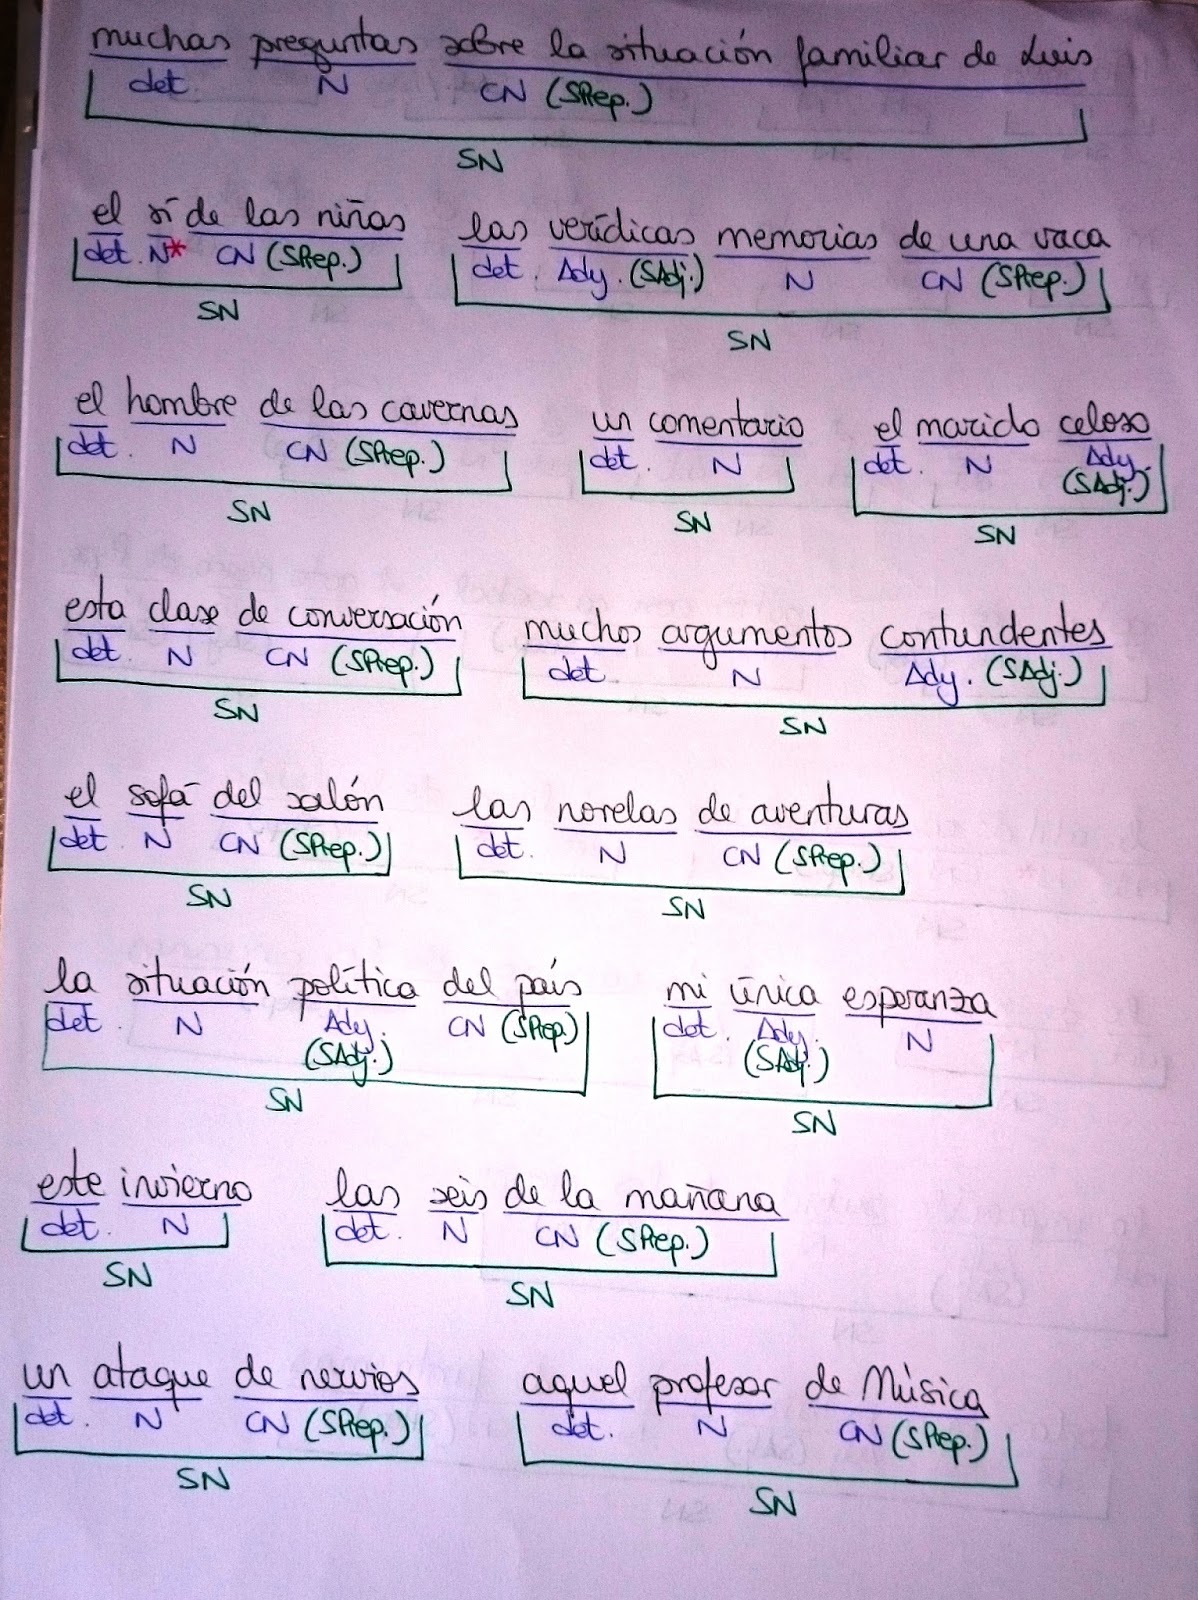 muchas preguntas sobre la situación familiar de Luis
det. N CN (SPrep.)
SN
el sí de las niñas las verídicas memorias de una vaca
det. N* CN (SPrep.) det. Ady. (SAdj.) N CN (SPrep.)
SN SN
el hombre de las cavernas un comentario el marido celoso
det. N CN (SPrep.) det. N det. N Ady.
(SAdj.)
SN SN SN
esta clase de conversación muchos argumentos contundentes
det. N CN (SPrep.) det N Ady. (SAdj.)
SN SN
el sofá del salón las novelas de aventuras
det. N CN (SPrep.) det. N CN (SPrep.)
SN SN
la situación política del país mi única esperanza
det. N Ady. CN (SPrep.) det. Ady. N
(SAdj.) (SAdj.)
SN SN
este invierno las seis de la mañana
det. N det. N CN (SPrep.)
SN SN
un ataque de nervios aquel profesor de Música
det. N CN (SPrep.) det. N CN (SPrep.)
SN SN